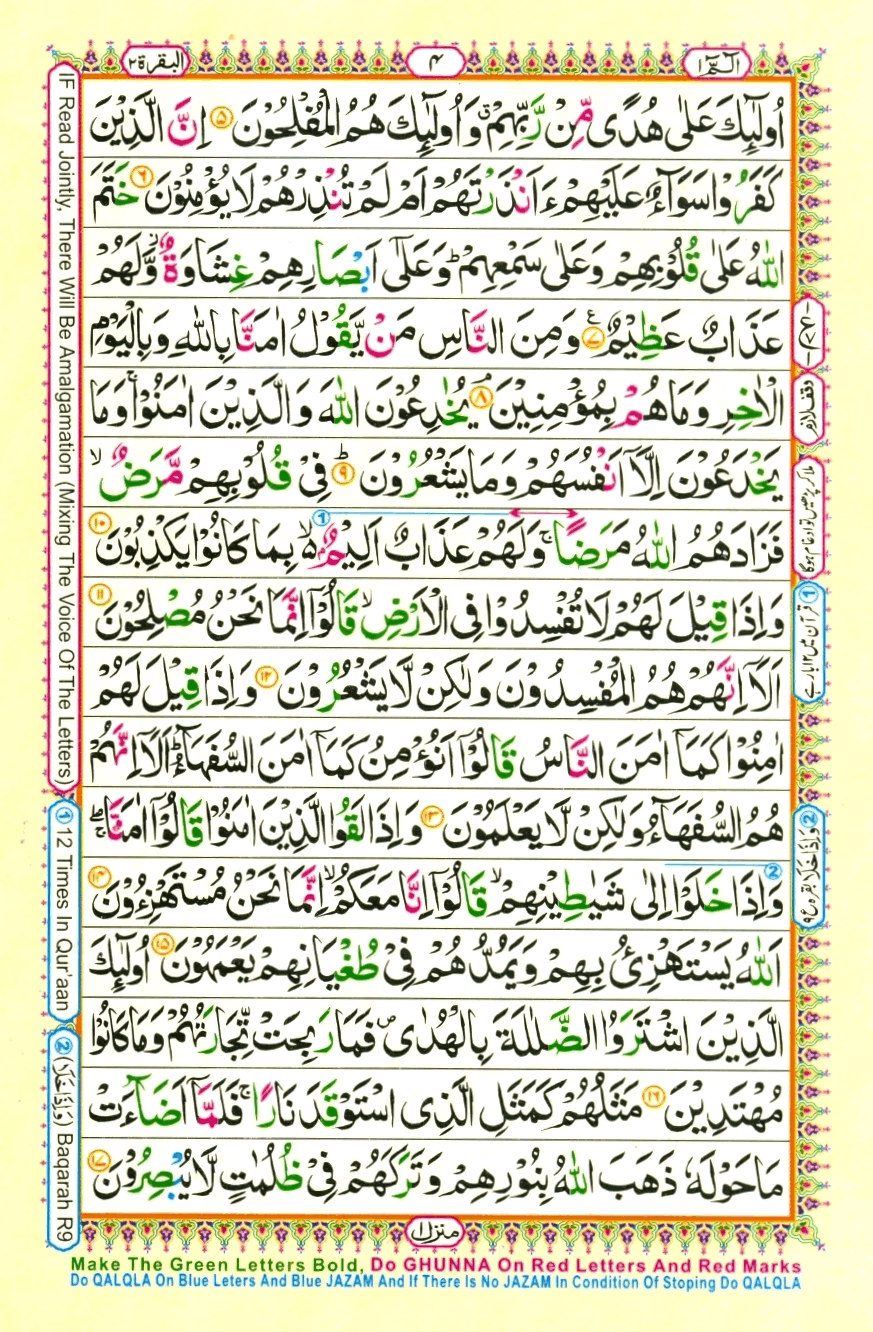 الٓمّٓ ١
٤
البقرة ٢
اُولٰٓئِكَ عَلٰى هُدًى مِّنْ رَّبِّهِمْ ۙ وَ اُولٰٓئِكَ هُمُ الْمُفْلِحُوْنَ ۵ اِنَّ الَّذِيْنَ
كَفَرُوْا سَوَآءٌ عَلَيْهِمْ ءَاَنْذَرْتَهُمْ اَمْ لَمْ تُنْذِرْهُمْ لَا يُؤْمِنُوْنَ ۶ خَتَمَ
اللّٰهُ عَلٰى قُلُوْبِهِمْ وَعَلٰى سَمْعِهِمْ ؕ وَعَلٰٓى اَبْصَارِهِمْ غِشَاوَةٌ ۫ وَّلَهُمْ
عَذَابٌ عَظِيْمٌ ۷ ع وَمِنَ النَّاسِ مَنْ يَّقُوْلُ اٰمَنَّا بِاللّٰهِ وَبِالْيَوْمِ
الْاٰخِرِ وَمَا هُمْ بِمُؤْمِنِيْنَ ۘ ۸ يُخٰدِعُوْنَ اللّٰهَ وَالَّذِيْنَ اٰمَنُوْا ۚ وَمَا
يَخْدَعُوْنَ اِلَّآ اَنْفُسَهُمْ وَمَا يَشْعُرُوْنَ ؕ ۹ فِيْ قُلُوْبِهِمْ مَّرَضٌ ۙ
فَزَادَهُمُ اللّٰهُ مَرَضًا ۚ وَلَهُمْ عَذَابٌ اَلِيْمٌۢ ۙ۬ بِمَا كَانُوْا يَكْذِبُوْنَ ۱۰
وَاِذَا قِيْلَ لَهُمْ لَا تُفْسِدُوْا فِى الْاَرْضِ ۙ قَالُوْٓا اِنَّمَا نَحْنُ مُصْلِحُوْنَ ۱۱
اَلَآ اِنَّهُمْ هُمُ الْمُفْسِدُوْنَ وَلٰكِنْ لَّا يَشْعُرُوْنَ ۱۲ وَاِذَا قِيْلَ لَهُمْ
اٰمِنُوْا كَمَآ اٰمَنَ النَّاسُ قَالُوْٓا اَنُؤْمِنُ كَمَآ اٰمَنَ السُّفَهَآءُ ؕ اَلَآ اِنَّهُمْ
هُمُ السُّفَهَآءُ وَلٰكِنْ لَّا يَعْلَمُوْنَ ۱۳ وَاِذَا لَقُوا الَّذِيْنَ اٰمَنُوْا قَالُوْٓا اٰمَنَّا ۖۚ
وَاِذَا خَلَوْا اِلٰى شَيٰطِيْنِهِمْ ۙ قَالُوْٓا اِنَّا مَعَكُمْ ۙ اِنَّمَا نَحْنُ مُسْتَهْزِءُوْنَ ۱۴
اَللّٰهُ يَسْتَهْزِئُ بِهِمْ وَيَمُدُّهُمْ فِيْ طُغْيَانِهِمْ يَعْمَهُوْنَ ۱۵ اُولٰٓئِكَ
الَّذِيْنَ اشْتَرَوُا الضَّلٰلَةَ بِالْهُدٰى ۪ فَمَا رَبِحَتْ تِّجَارَتُهُمْ وَمَا كَانُوْا
مُهْتَدِيْنَ ۱۶ مَثَلُهُمْ كَمَثَلِ الَّذِى اسْتَوْقَدَ نَارًا ۚ فَلَمَّآ اَضَآءَتْ
مَا حَوْلَهٗ ذَهَبَ اللّٰهُ بِنُوْرِهِمْ وَتَرَكَهُمْ فِيْ ظُلُمٰتٍ لَّا يُبْصِرُوْنَ ۱۷
وقف لازم
ملا کر پڑھیں تو ادغام ہوگا
① قرآن میں ۱۲ بار ہے
② وَاِذَا خَلَا بقرہ ع ۹
IF Read Jointly, There Will Be Amalgamation (Mixing The Voice Of The Letters)
① 12 Times In Qur'aan
② (وَاِذَا خَلَا) Baqarah R9
منزل ١
Make The Green Letters Bold, Do GHUNNA On Red Letters And Red Marks
Do QALQLA On Blue Leters And Blue JAZAM And If There Is No JAZAM In Condition Of Stoping Do QALQLA